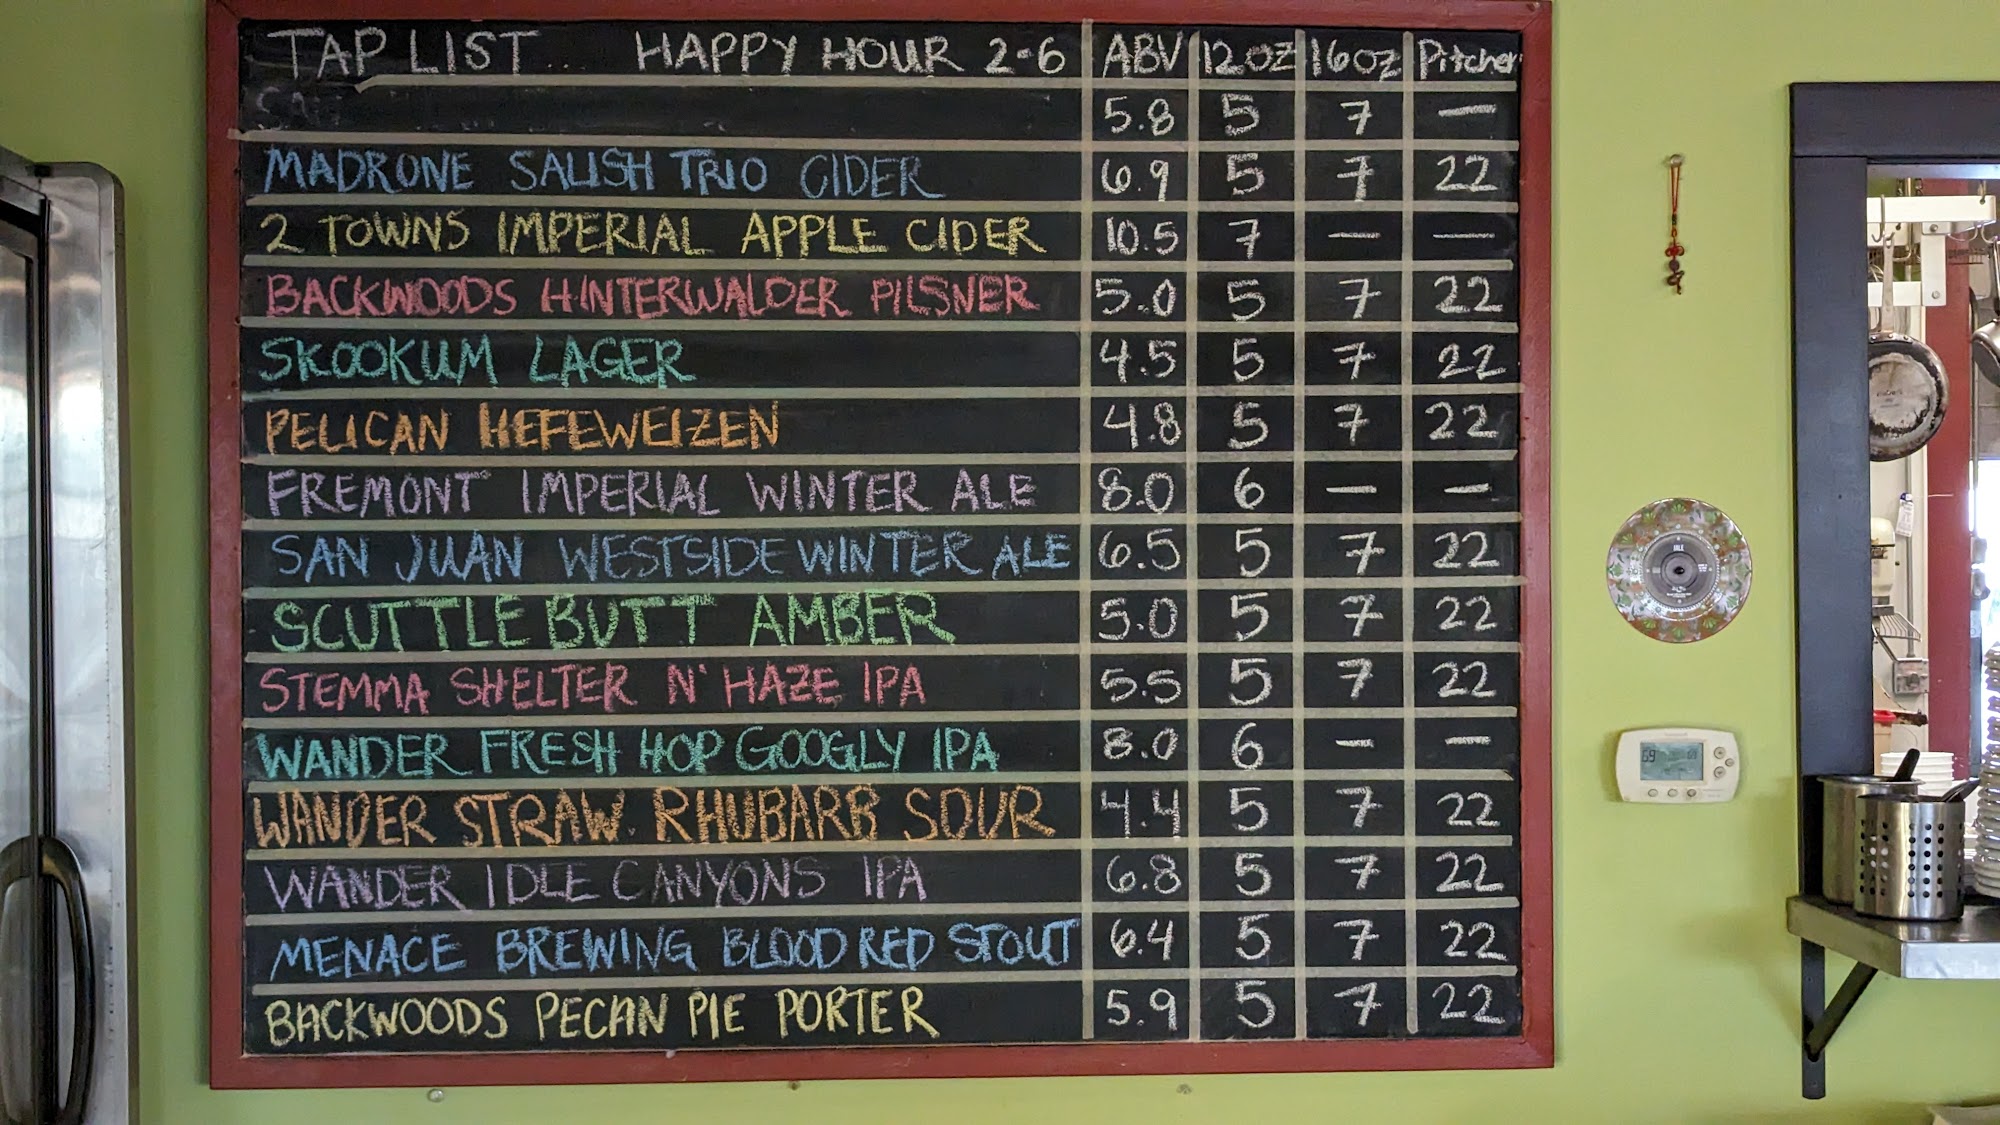 TAP LIST... HAPPY HOUR 2-6 ABV 12oz 16oz Pitcher
5.8 5 7 —
MADRONE SALISH TRIO CIDER 6.9 5 7 22
2 TOWNS IMPERIAL APPLE CIDER 10.5 7 — —
BACKWOODS HINTERWALDER PILSNER 5.0 5 7 22
SKOOKUM LAGER 4.5 5 7 22
PELICAN HEFEWEIZEN 4.8 5 7 22
FREMONT IMPERIAL WINTER ALE 8.0 6 — —
SAN JUAN WESTSIDE WINTER ALE 6.5 5 7 22
SCUTTLEBUTT AMBER 5.0 5 7 22
STEMMA SHELTER N' HAZE IPA 5.5 5 7 22
WANDER FRESH HOP GOOGLY IPA 8.0 6 — —
WANDER STRAW. RHUBARB SOUR 4.4 5 7 22
WANDER IDLE CANYONS IPA 6.8 5 7 22
MENACE BREWING BLOOD RED STOUT 6.4 5 7 22
BACKWOODS PECAN PIE PORTER 5.9 5 7 22